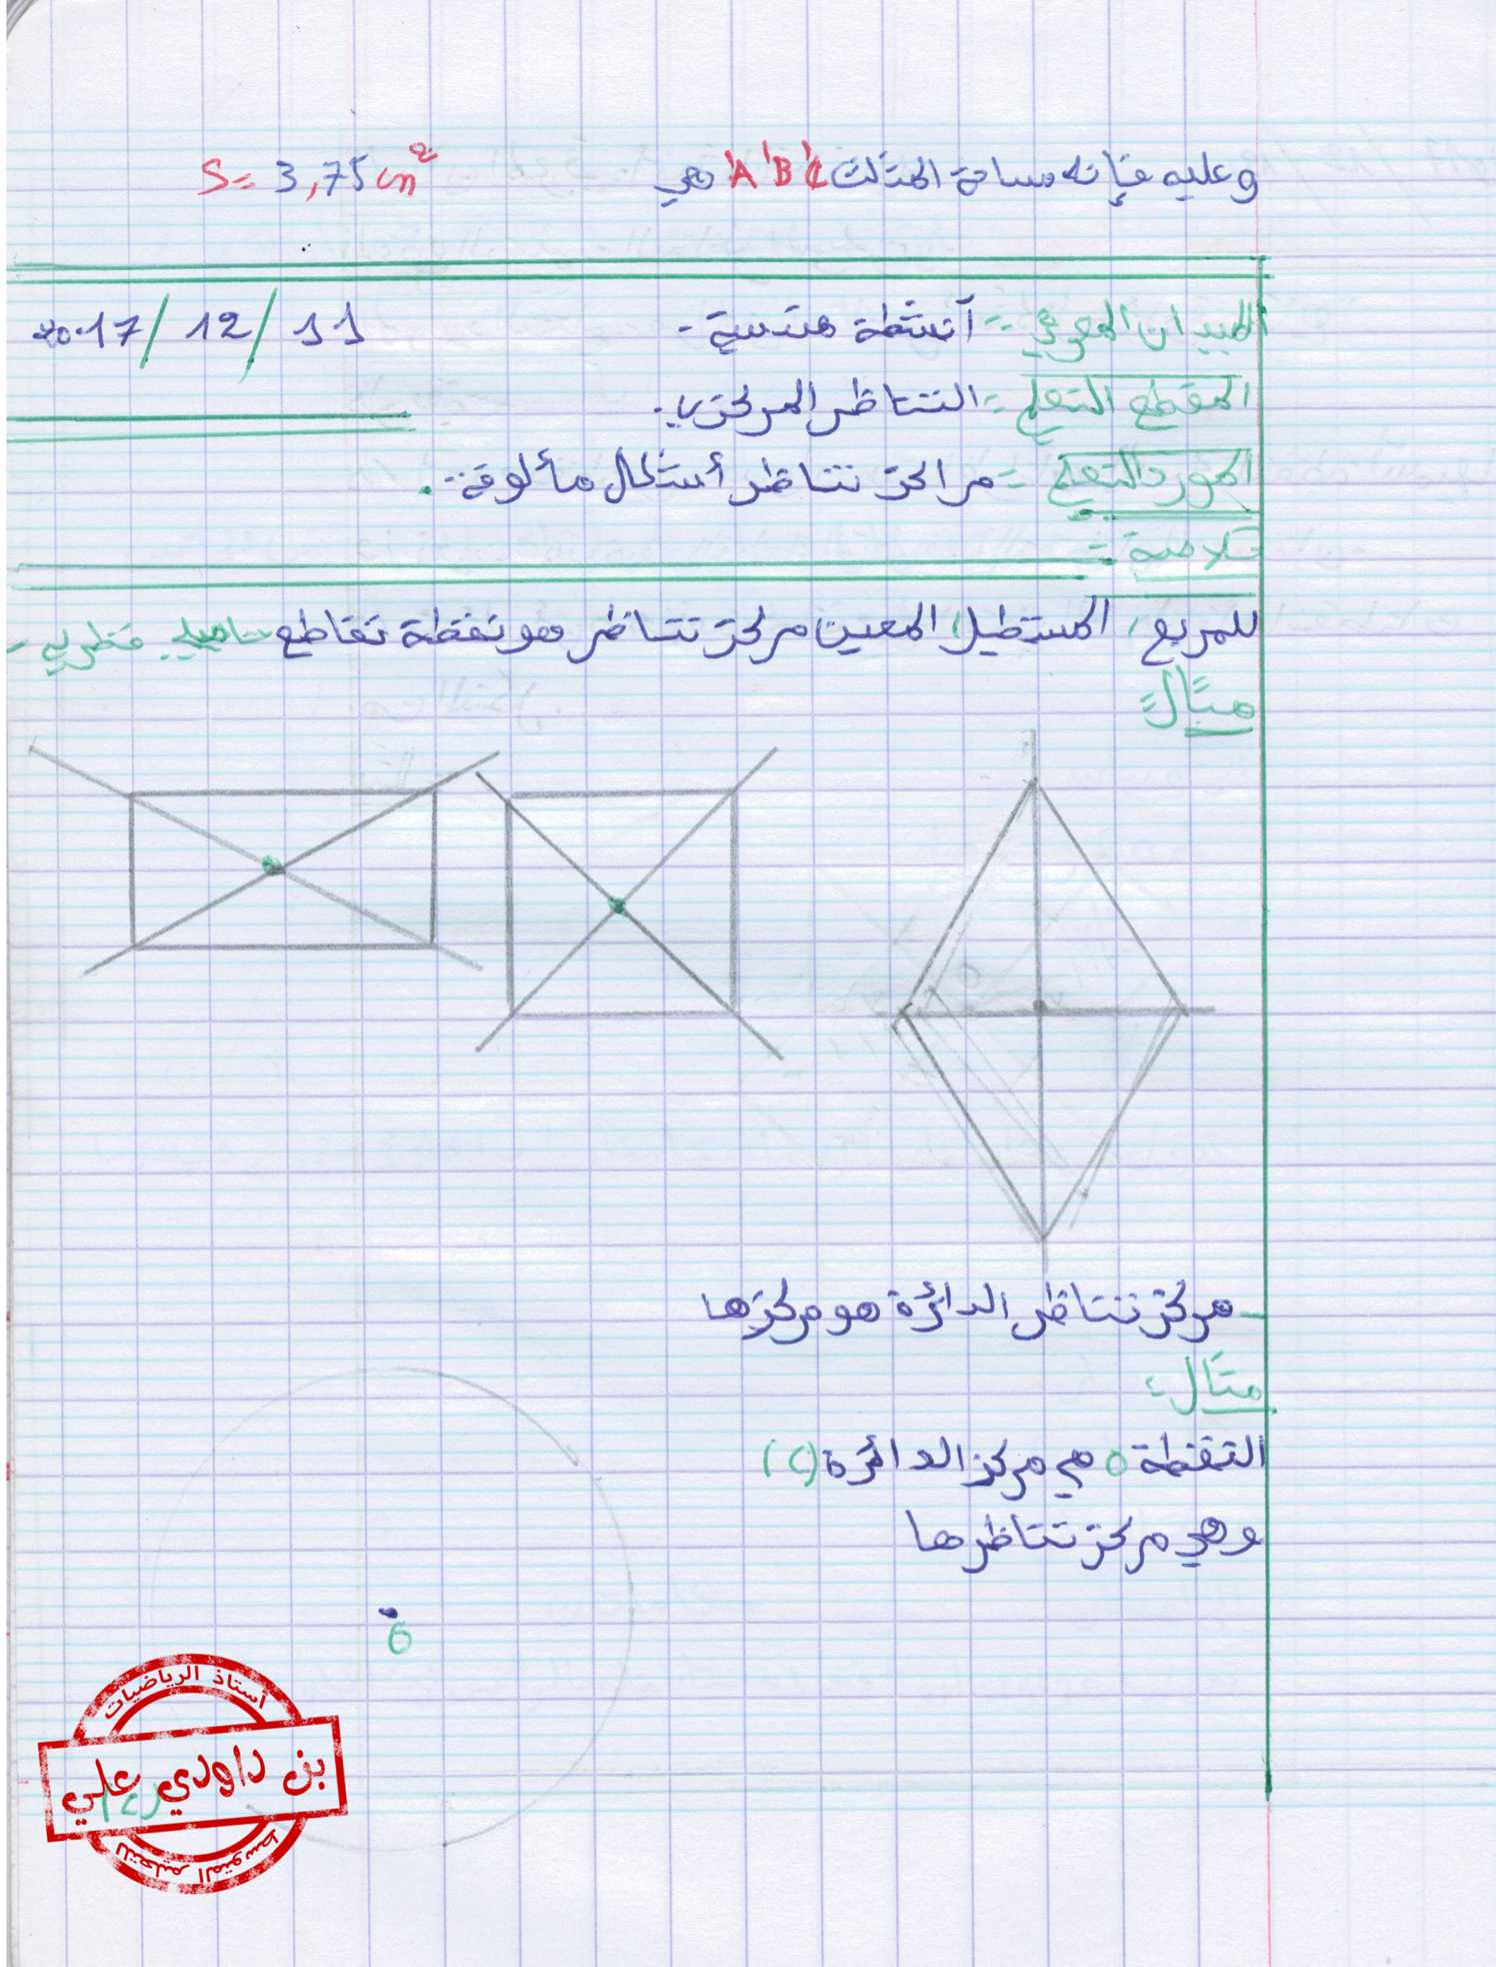 وعليه فإنه مساحة المثلث A'B'C' هي S= 3,75 cm²
الميدان المعرفي :- أنشطة هندسية - 2017/ 12/ 11
المقطع التعلمي :- التناظر المركزي .
المورد التعلمي :- مراكز تناظر أشكال مألوفة - .
خلاصة :-
للمربع ، المستطيل ، المعين مركز تناظر هو نقطة تقاطع حاملي قطريه -
مثال :
- مركز تناظر الدائرة هو مركزها
مثال :
النقطة O هي مركز الدائرة (C)
وهي مركز تناظرها
O
(C)
أستاذ الرياضيات
بن داودي علي
للتعليم المتوسط